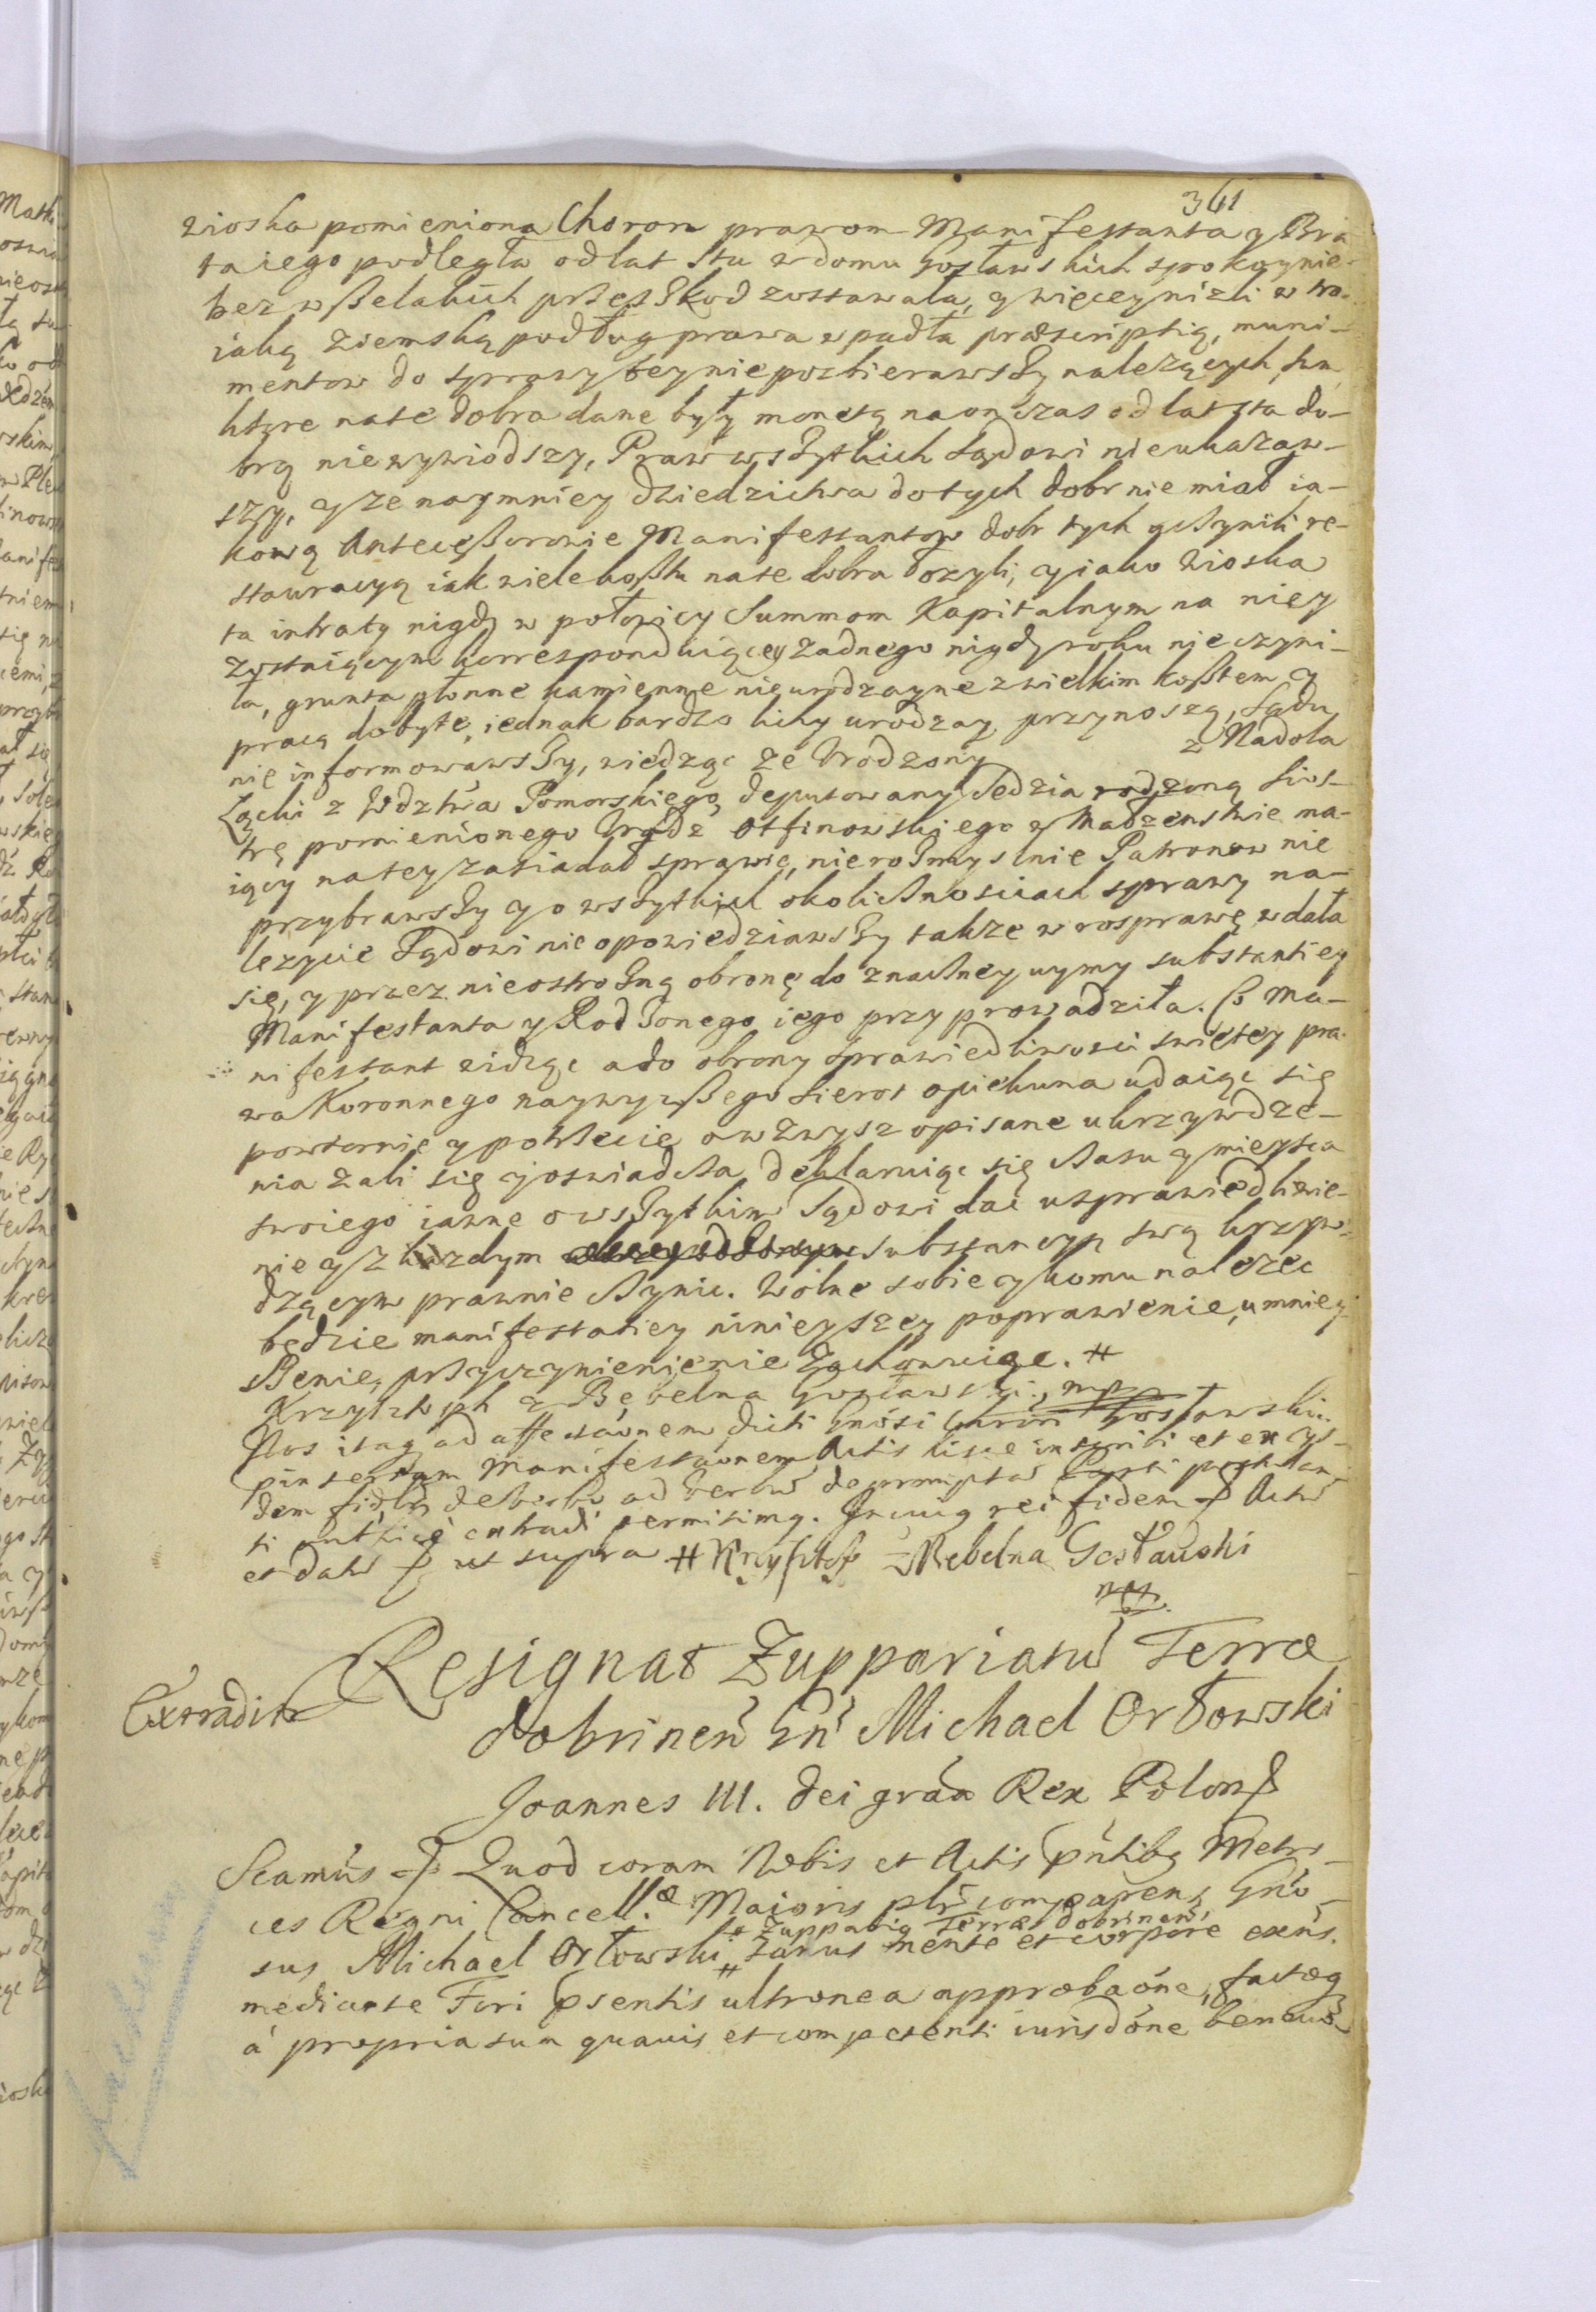 361
wioska pomieniona Choron prawom Manifestanta y Bra
ta iego podległa od lat stu w domu Gosławskich spokoynie
bez wszelakich przeszkod zostawała, y więcey niżli w tro-
iaką ziemską podług prawa wpadła præscriptią, muni-
mentow do sprawy tey nie pozbierawszy należących,
ktore na te dobra dane były monetą na on czas od lat sta do-
brą niewywiodszy, Praw wszytkich Sądowi nieukazaw-
szy, y że naymniey dziedzictwa do tych dobr nie miał ia-
kową Antecessorowie Manifestantow dobr tych uczynili re-
stauracyą iak wiele kosztu na te dobra łożyli, y iako wioska
ta intraty nigdy w połowicy Summom Kapitalnym na niey
zostaiącym korresponduiącey żadnego nigdy roku nie czyni-
ła, grunta płonne kamienne nieurodzayne z wielkim kosztem y
pracą dobyte, iednak bardzo lichy urodzay przynoszą, Sądu
nie informowawszy, wiedząc że Urodzony z Nadola
Łącki z Wdztwa Pomorskiego deputowany Sedzia rodzoną Sios-
trę pomienionego Urodz Otfinowskiego w Małżenstwie ma-
iący na tey zasiadał sprawie, nierozmyslnie Patronow nie
przybrawszy y o wszytkich okolicznosciach sprawy na-
lezycie Sądowi nie opowiedziawszy także w rosprawę wdała
się, y przez nieostrożną obronę do znaczney uymy substantiey
Manifestanta y Rodzonego iego przyprowadziła. Co Ma-
nifestant widząc a do obrony sprawiedliwosci swiętey pra-
wa Koronnego naywyzszego Sierot opiekuna udaiąc się
powtornie y potrzecie o wzwysz opisane ukrzywdze-
nia żali się y oswiadcza, deklaruiąc się czasu y mieysca
swoiego iawne o wszytkim Sądowi dac usprawiedliwie-
nie y z każdym substancyą swą krzyw-
dzącym prawnie czynic. Wolne sobie y komu nalezec
będzie manifestatiey ninieyszey poprawienie, umniey-
szenie, przyczynienie zachowuiąc. #
Krzysztoph z Bębelna Gosławski, mp
Nos itaq ad affectaõnem dicti Gnosi Gosławski
pnsentem Manifestaõnem Actis hisce inscribi et ex ijs-
dem fidelr de verbo ad verbũ depromptũ Parti postulan-
ti authenticè extradi permisimq. In cuiq rei fidem Actũ
et datũ ut supra # Krzysztof z Bebelna Gosławski
mp
Resignat Zuppariatũ Terræ
Extraditr
dobrineñ Gñ Michael Orłowski
Joannes III. Dei grãa Rex Polon
Scamus Quod coram Nobis et Actis pñtibq Metri-
ces Regni Cancell.æ Maioris plr comparens Gño-
# Zuppariq Terræ dobrineñ
sus Michael Orłowski # sanus mente et corpore exens.
mediante Fori psentis ultronea approbaõne, factoq
á propria sua quavis et competenti iurisdõne